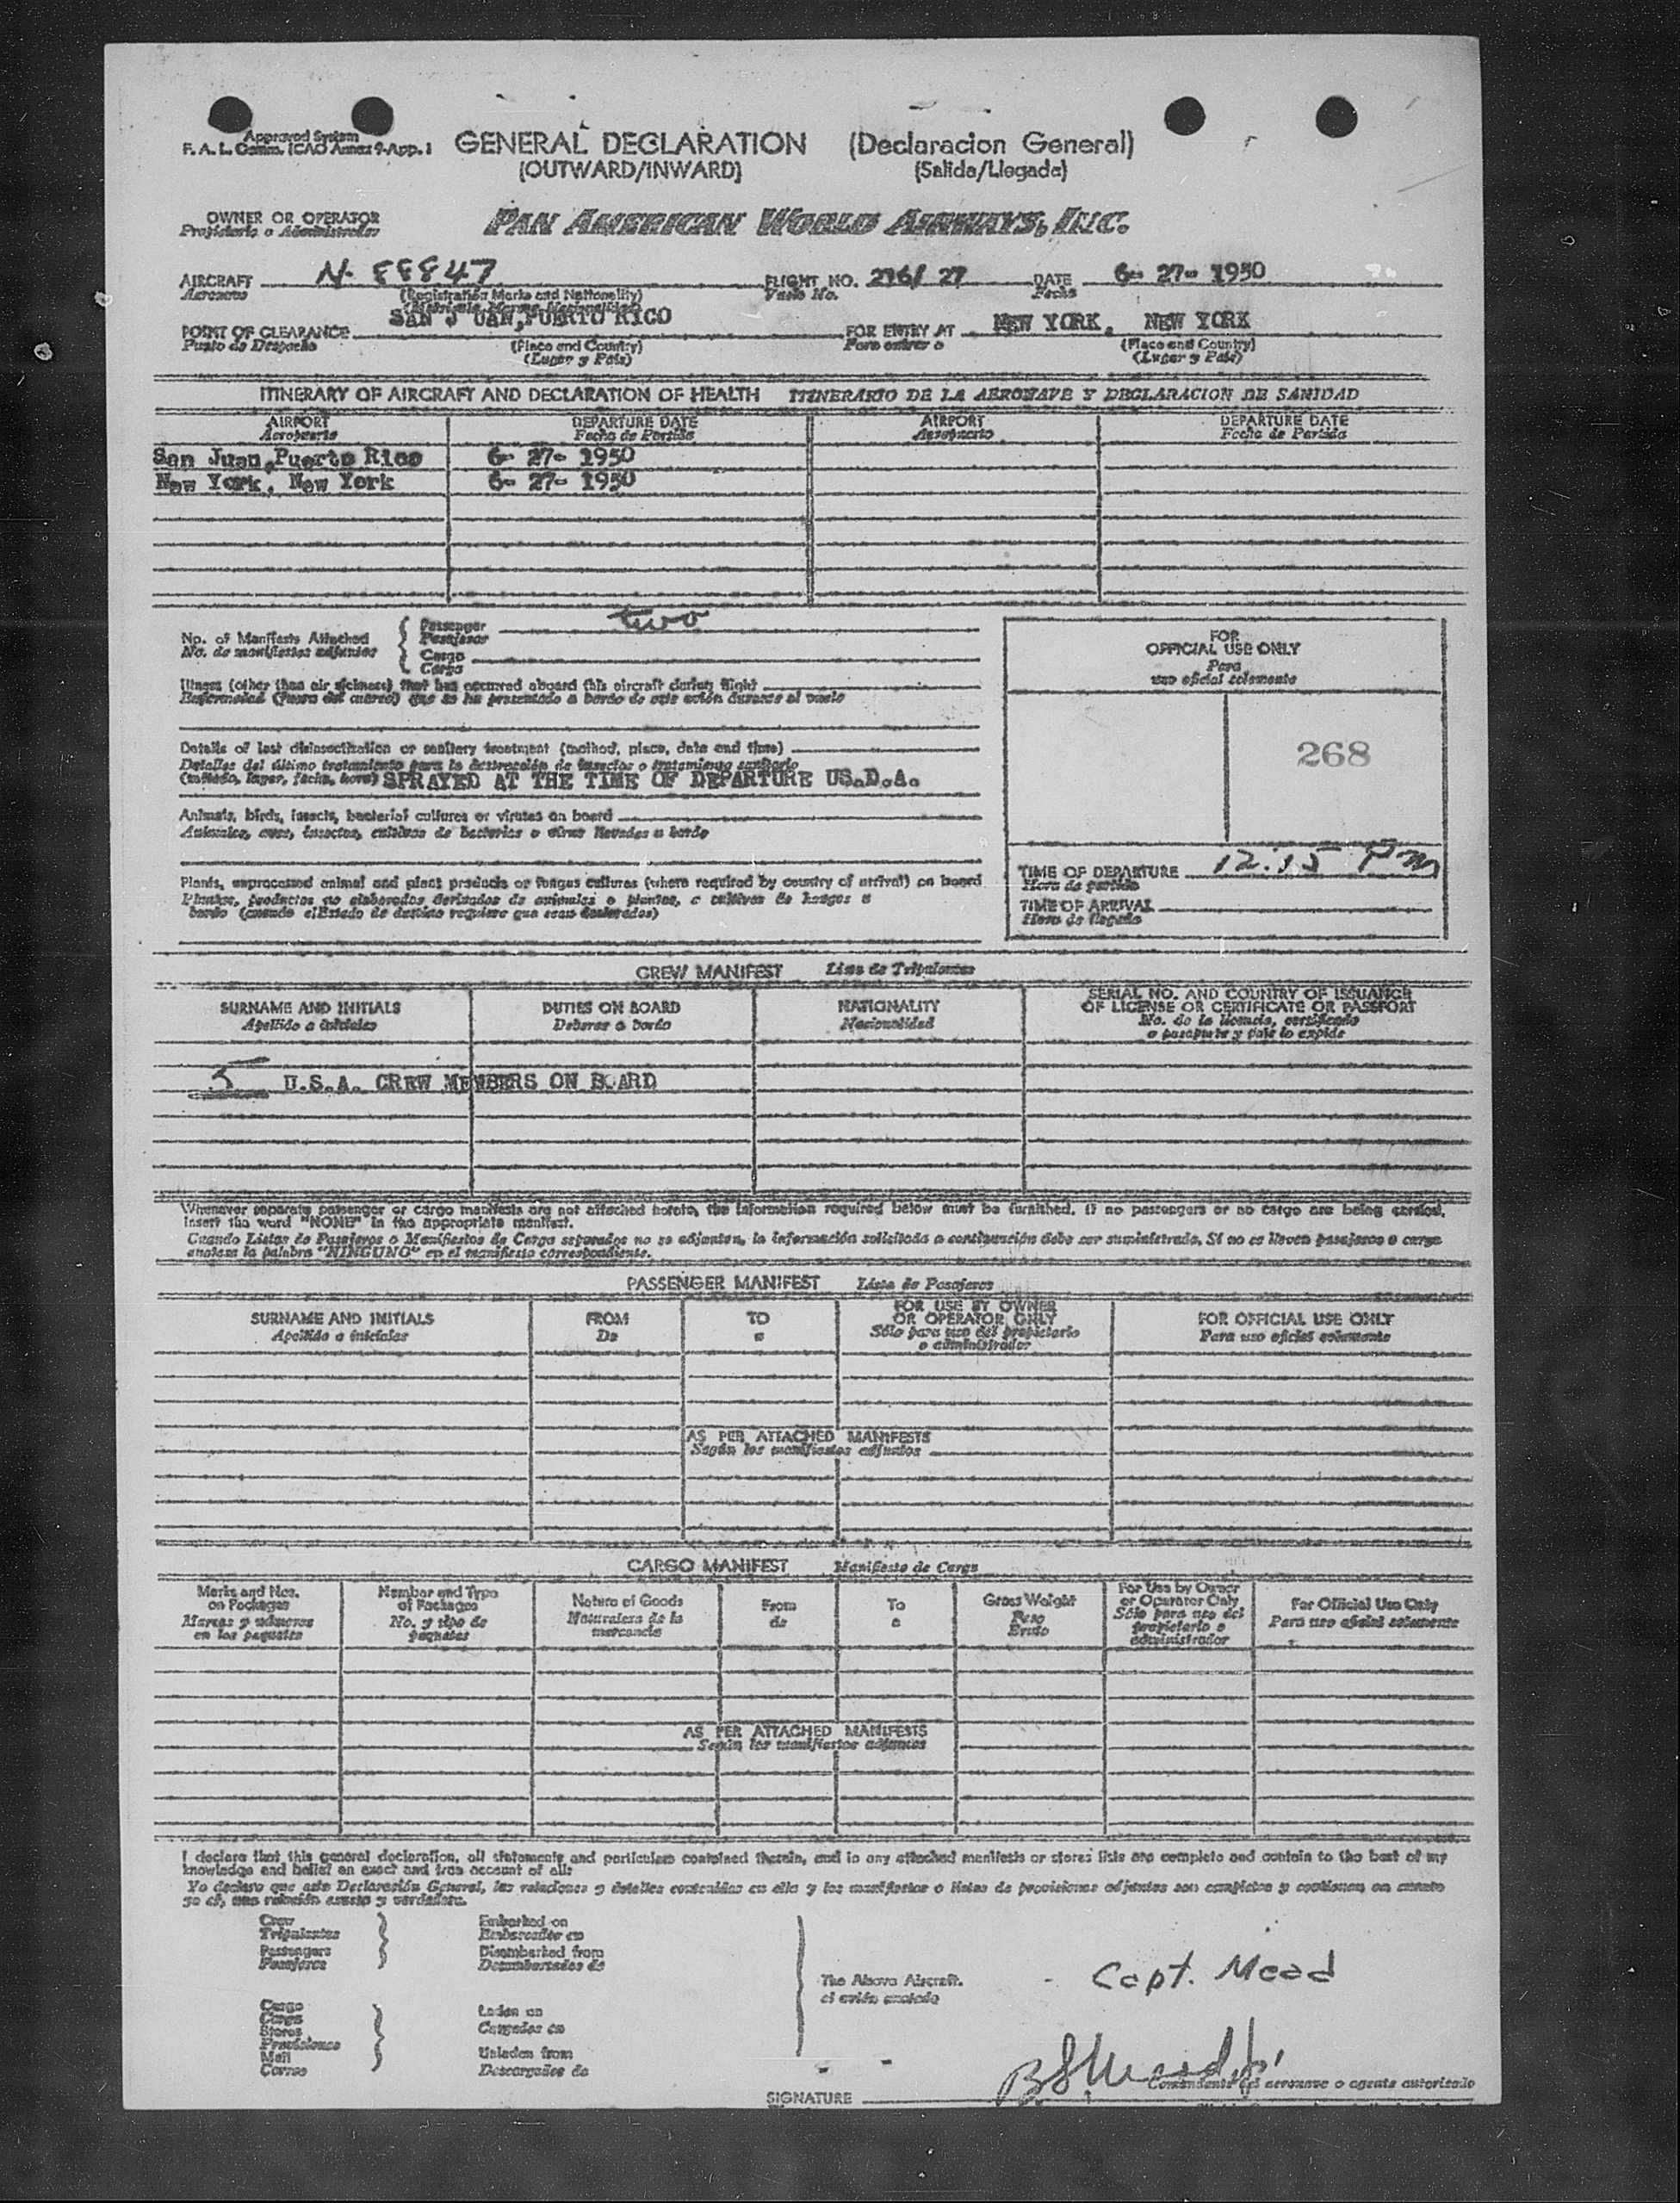 Approved System
F. A. L. Comm. ICAO Annex 9-App. 1
GENERAL DECLARATION (Declaracion General)
(OUTWARD/INWARD) (Salida/Llegada)
OWNER OR OPERATOR
Propietario o Administrador
PAN AMERICAN WORLD AIRWAYS, INC.
AIRCRAFT N- 88847 FLIGHT NO. 216/ 27 DATE 6- 27- 1950
Aeronave (Registration Marks and Nationality) Vuelo No. Fecha
SAN J UAN,PUERTO RICO
POINT OF CLEARANCE FOR ENTRY AT NEW YORK, NEW YORK
Punto de Despacho (Place and Country) Para entrar a (Place and Country)
(Lugar y País) (Lugar y País)
ITINERARY OF AIRCRAFT AND DECLARATION OF HEALTH ITINERARIO DE LA AERONAVE Y DECLARACION DE SANIDAD
AIRPORT DEPARTURE DATE AIRPORT DEPARTURE DATE
Aeropuerto Fecha de Partida Aeropuerto Fecha de Partida
San Juan,Puerto Rico 6- 27- 1950
New York, New York 6- 27- 1950
No. of Manifests Attached
No. de manifiestos adjuntos
Passenger two
Pasajeros
Cargo
Carga
Illness (other than air sickness) that has occurred aboard this aircraft during flight
Enfermedad (fuera del mareo) que se ha presentado a bordo de este avión durante el vuelo
Details of last disinsectization or sanitary treatment (method, place, date and time)
Detalles del último tratamiento para la destrucción de insectos o tratamiento sanitario
(método, lugar, fecha, hora) SPRAYED AT THE TIME OF DEPARTURE US.D.A.
Animals, birds, insects, bacterial cultures or viruses on board
Animales, aves, insectos, cultivos de bacterias o virus llevados a bordo
Plants, unprocessed animal and plant products or fungus cultures (where required by country of arrival) on board
Plantas, productos no elaborados derivados de animales o plantas, o cultivos de hongos a
bordo (cuando el Estado de destino requiere que sean declarados)
FOR
OFFICIAL USE ONLY
Para
uso oficial solamente
268
TIME OF DEPARTURE 12:15 PM
Hora de partida
TIME OF ARRIVAL
Hora de llegada
CREW MANIFEST Lista de Tripulantes
SURNAME AND INITIALS DUTIES ON BOARD NATIONALITY SERIAL NO. AND COUNTRY OF ISSUANCE
OF LICENSE OR CERTIFICATE OR PASSPORT
Apellido e iniciales Deberes a bordo Nacionalidad No. de la licencia, certificado
o pasaporte y país lo expide
5 U.S.A. CREW MEMBERS ON BOARD
Whenever separate passenger or cargo manifests are not attached hereto, the information required below must be furnished. If no passengers or no cargo are being carried,
insert the word "NONE" in the appropriate manifest.
Cuando Listas de Pasajeros o Manifiestos de Carga separados no se adjunten, la información solicitada a continuación debe ser suministrada. Si no se lleven pasajeros o carga
anótese la palabra "NINGUNO" en el manifiesto correspondiente.
PASSENGER MANIFEST Lista de Pasajeros
SURNAME AND INITIALS FROM TO FOR USE BY OWNER
OR OPERATOR ONLY FOR OFFICIAL USE ONLY
Apellido e iniciales De a Sólo para uso del propietario
o administrador Para uso oficial solamente
AS PER ATTACHED MANIFESTS
Según los manifiestos adjuntos
CARGO MANIFEST Manifiesto de Carga
Marks and Nos.
on Packages
Marcas y números
en los paquetes
Number and Type
of Packages
No. y tipo de
paquetes
Nature of Goods
Naturaleza de la
mercancía
From
de
To
a
Gross Weight
Peso
Bruto
For Use by Owner
or Operator Only
Sólo para uso del
propietario o
administrador
For Official Use Only
Para uso oficial solamente
AS PER ATTACHED MANIFESTS
Según los manifiestos adjuntos
I declare that this general declaration, all statements and particulars contained therein, and in any attached manifests or stores lists are complete and contain to the best of my
knowledge and belief an exact and true account of all:
Yo declaro que esta Declaración General, las relaciones y detalles contenidas en ella y los manifiestos o listas de provisiones adjuntos son completos y contienen en cuanto
yo sé, una relación exacta y verdadera.
Crew
Tripulantes
Passengers
Pasajeros
Embarked on
Embarcados en
Disembarked from
Desembarcados de
Cargo
Carga
Stores
Provisiones
Mail
Correo
Laden on
Cargados en
Unladen from
Descargados de
The Above Aircraft.
el avión anotado
Capt. Mead
SIGNATURE
Comandante del aeronave o agente autorizado